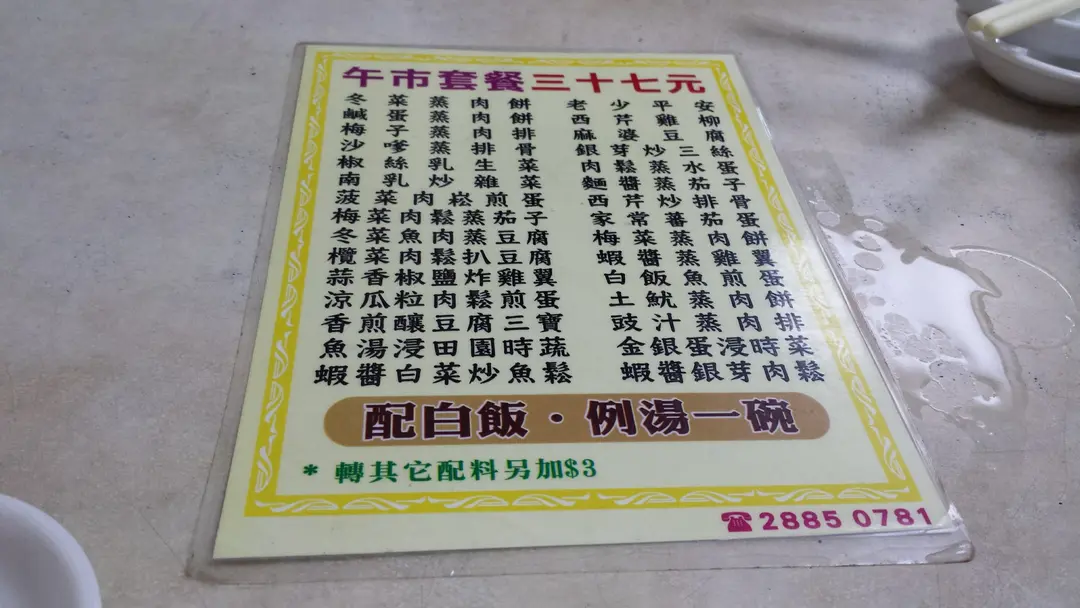 午市套餐三十七元
冬菜蒸肉餅
鹹蛋蒸肉餅
梅子蒸肉排
沙嗲蒸排骨
椒絲乳生菜
南乳炒雜菜
菠菜肉崧煎蛋
梅菜肉鬆蒸茄子
冬菜魚肉蒸豆腐
欖菜肉鬆扒豆腐
蒜香椒鹽炸雞翼
涼瓜粒肉鬆煎蛋
香煎釀豆腐三寶
魚湯浸田園時蔬
蝦醬白菜炒魚鬆
老少平安
西芹雞柳
麻婆豆腐
銀芽炒三絲
肉鬆蒸水蛋
麵醬蒸茄子
西芹炒排骨
家常蕃茄蛋
梅菜蒸肉餅
蝦醬蒸雞翼
白飯魚煎蛋
土魷蒸肉餅
豉汁蒸肉排
金銀蛋浸時菜
蝦醬銀芽肉鬆
配白飯·例湯一碗
* 轉其它配料另加$3
☎2885 0781